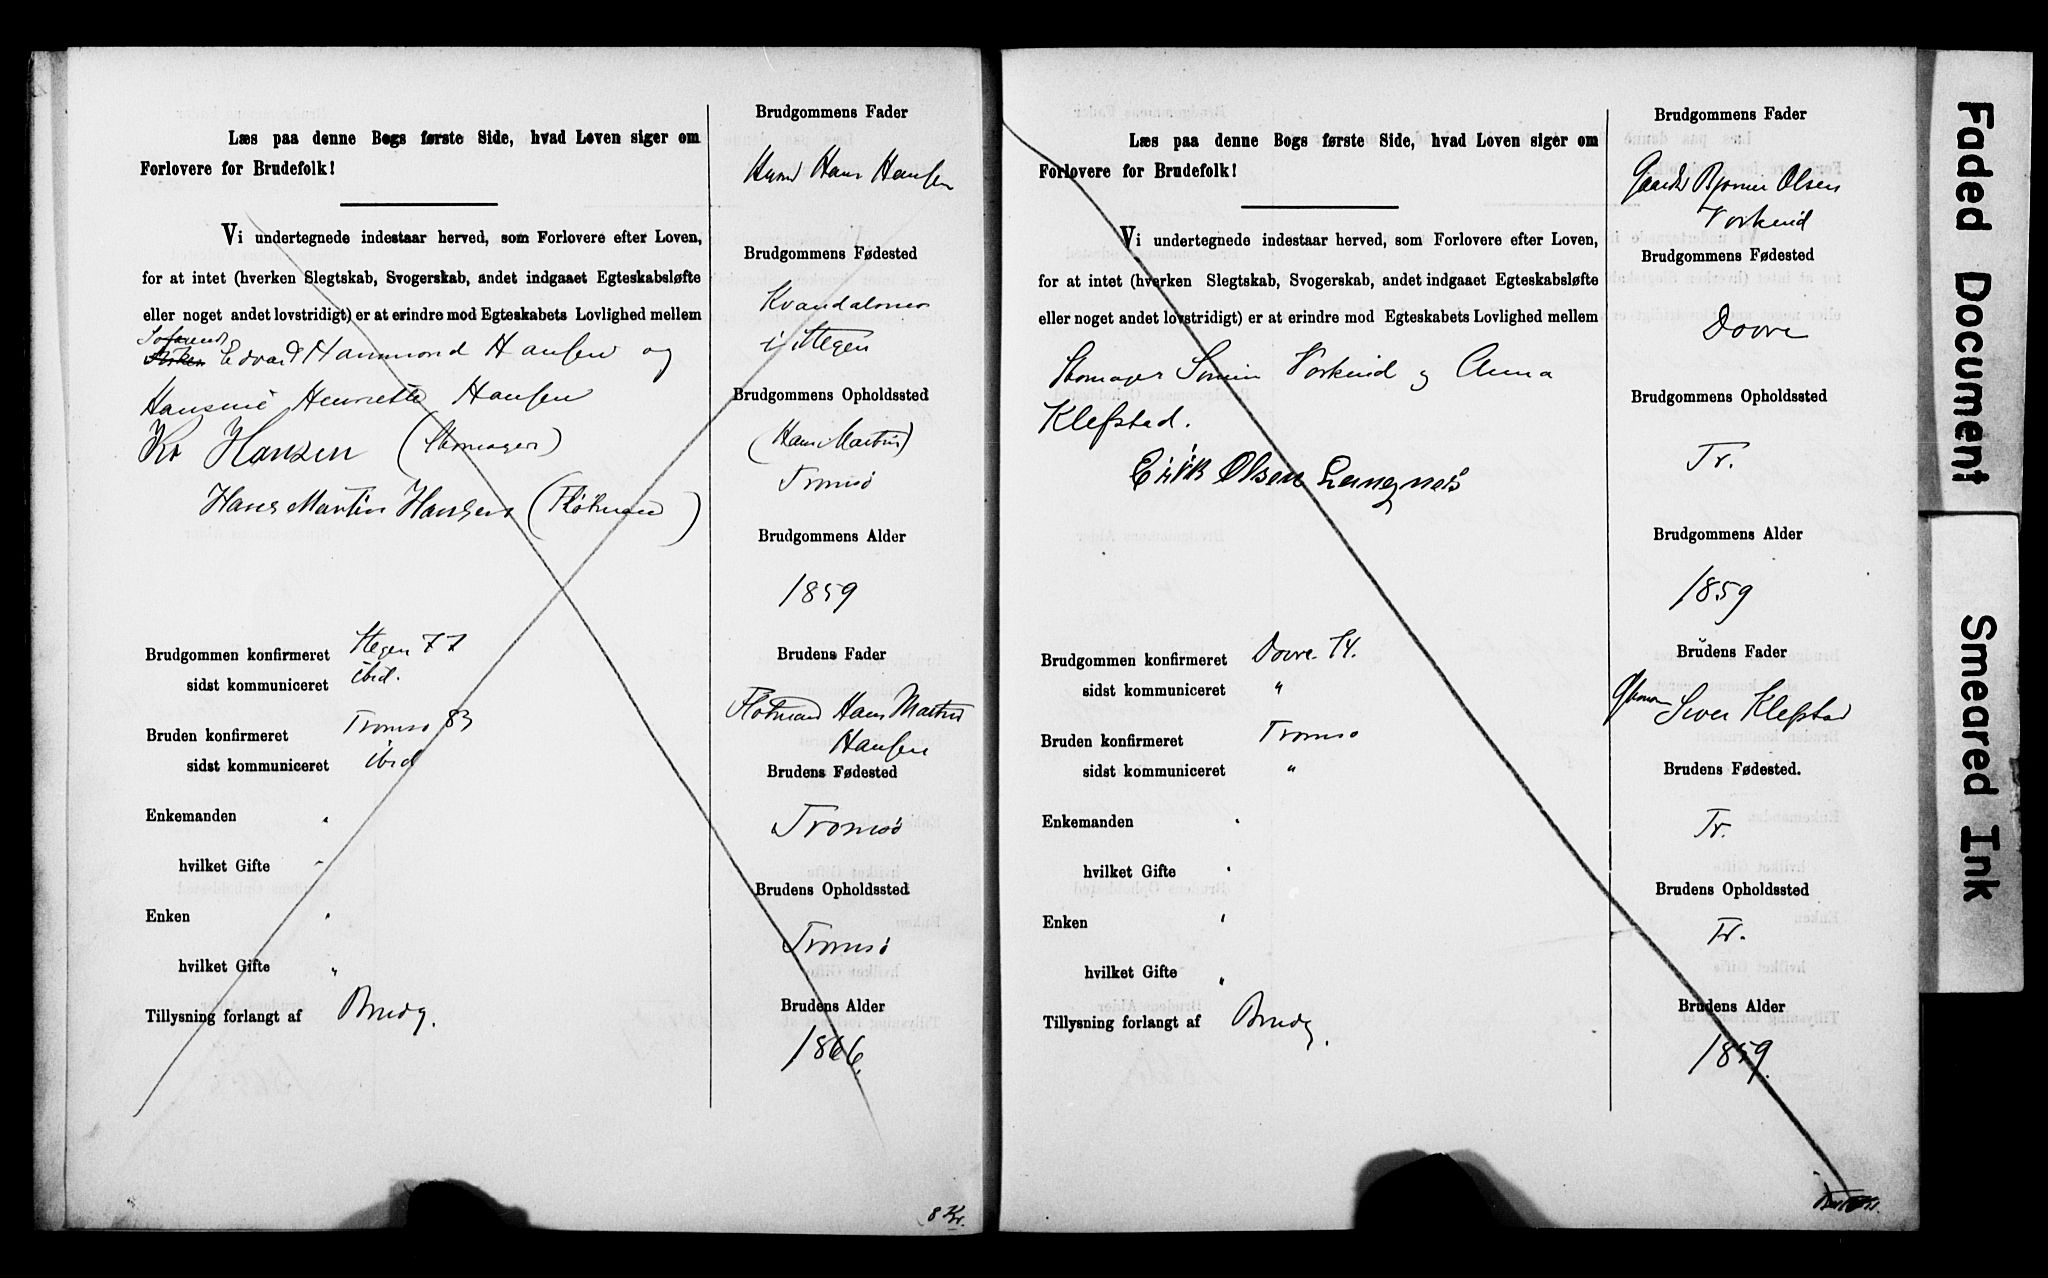 Læs paa denne Bogs første Side, hvad Loven siger om
Forlovere for Brudefolk!
Vi undertegnede indestaar herved, som Forlovere efter Loven,
for at intet (hverken Slegtskab, Svogerskab, andet indgaaet Egteskabsløfte
eller noget andet lovstridigt) er at erindre mod Egteskabets Lovlighed mellem
Edvard Hammond Hansen og
Hansine Henriette Hansen
Kr Hansen (Skomager)
Hans Martin Hansen (Flötmand)
Brudgommen konfirmeret Stegen 77
sidst kommuniceret ibid.
Bruden konfirmeret Tromsø 83
sidst kommuniceret ibid
Enkemanden "
hvilket Gifte "
Enken "
hvilket Gifte "
Tillysning forlangt af Brudg.
Brudgommens Fader
Hans Hansen
Brudgommens Fødested
i Stegen
Brudgommens Opholdssted
(Hans Martin)
Tromsø
Brudgommens Alder
1859
Brudens Fader
Flotmand Hans Martin
Hansen
Brudens Fødested
Tromsö
Brudens Opholdssted
Tromsö
Brudens Alder
1866.
8 Kr.
Læs paa denne Bogs første Side, hvad Loven siger om
Forlovere for Brudefolk!
Vi undertegnede indestaar herved, som Forlovere efter Loven,
for at intet (hverken Slegtskab, Svogerskab, andet indgaaet Egteskabsløfte
eller noget andet lovstridigt) er at erindre mod Egteskabets Lovlighed mellem
Skomager Simen Vorkinid og Anna
Klefstad.
Erik Olsen Langnes
Brudgommen konfirmeret Dovre 74.
sidst kommuniceret "
Bruden konfirmeret Tromsø
sidst kommuniceret "
Enkemanden "
hvilket Gifte "
Enken "
hvilket Gifte "
Tillysning forlangt af Brudg.
Brudgommens Fader
Gaardbr Olsen
Vorkinid
Brudgommens Fødested
Dovre
Brudgommens Opholdssted
Tr.
Brudgommens Alder
1859
Brudens Fader
Siver Klefstad
Brudens Fødested.
Tr.
Brudens Opholdssted
Tr.
Brudens Alder
1859.
Faded Document
Smeared Ink